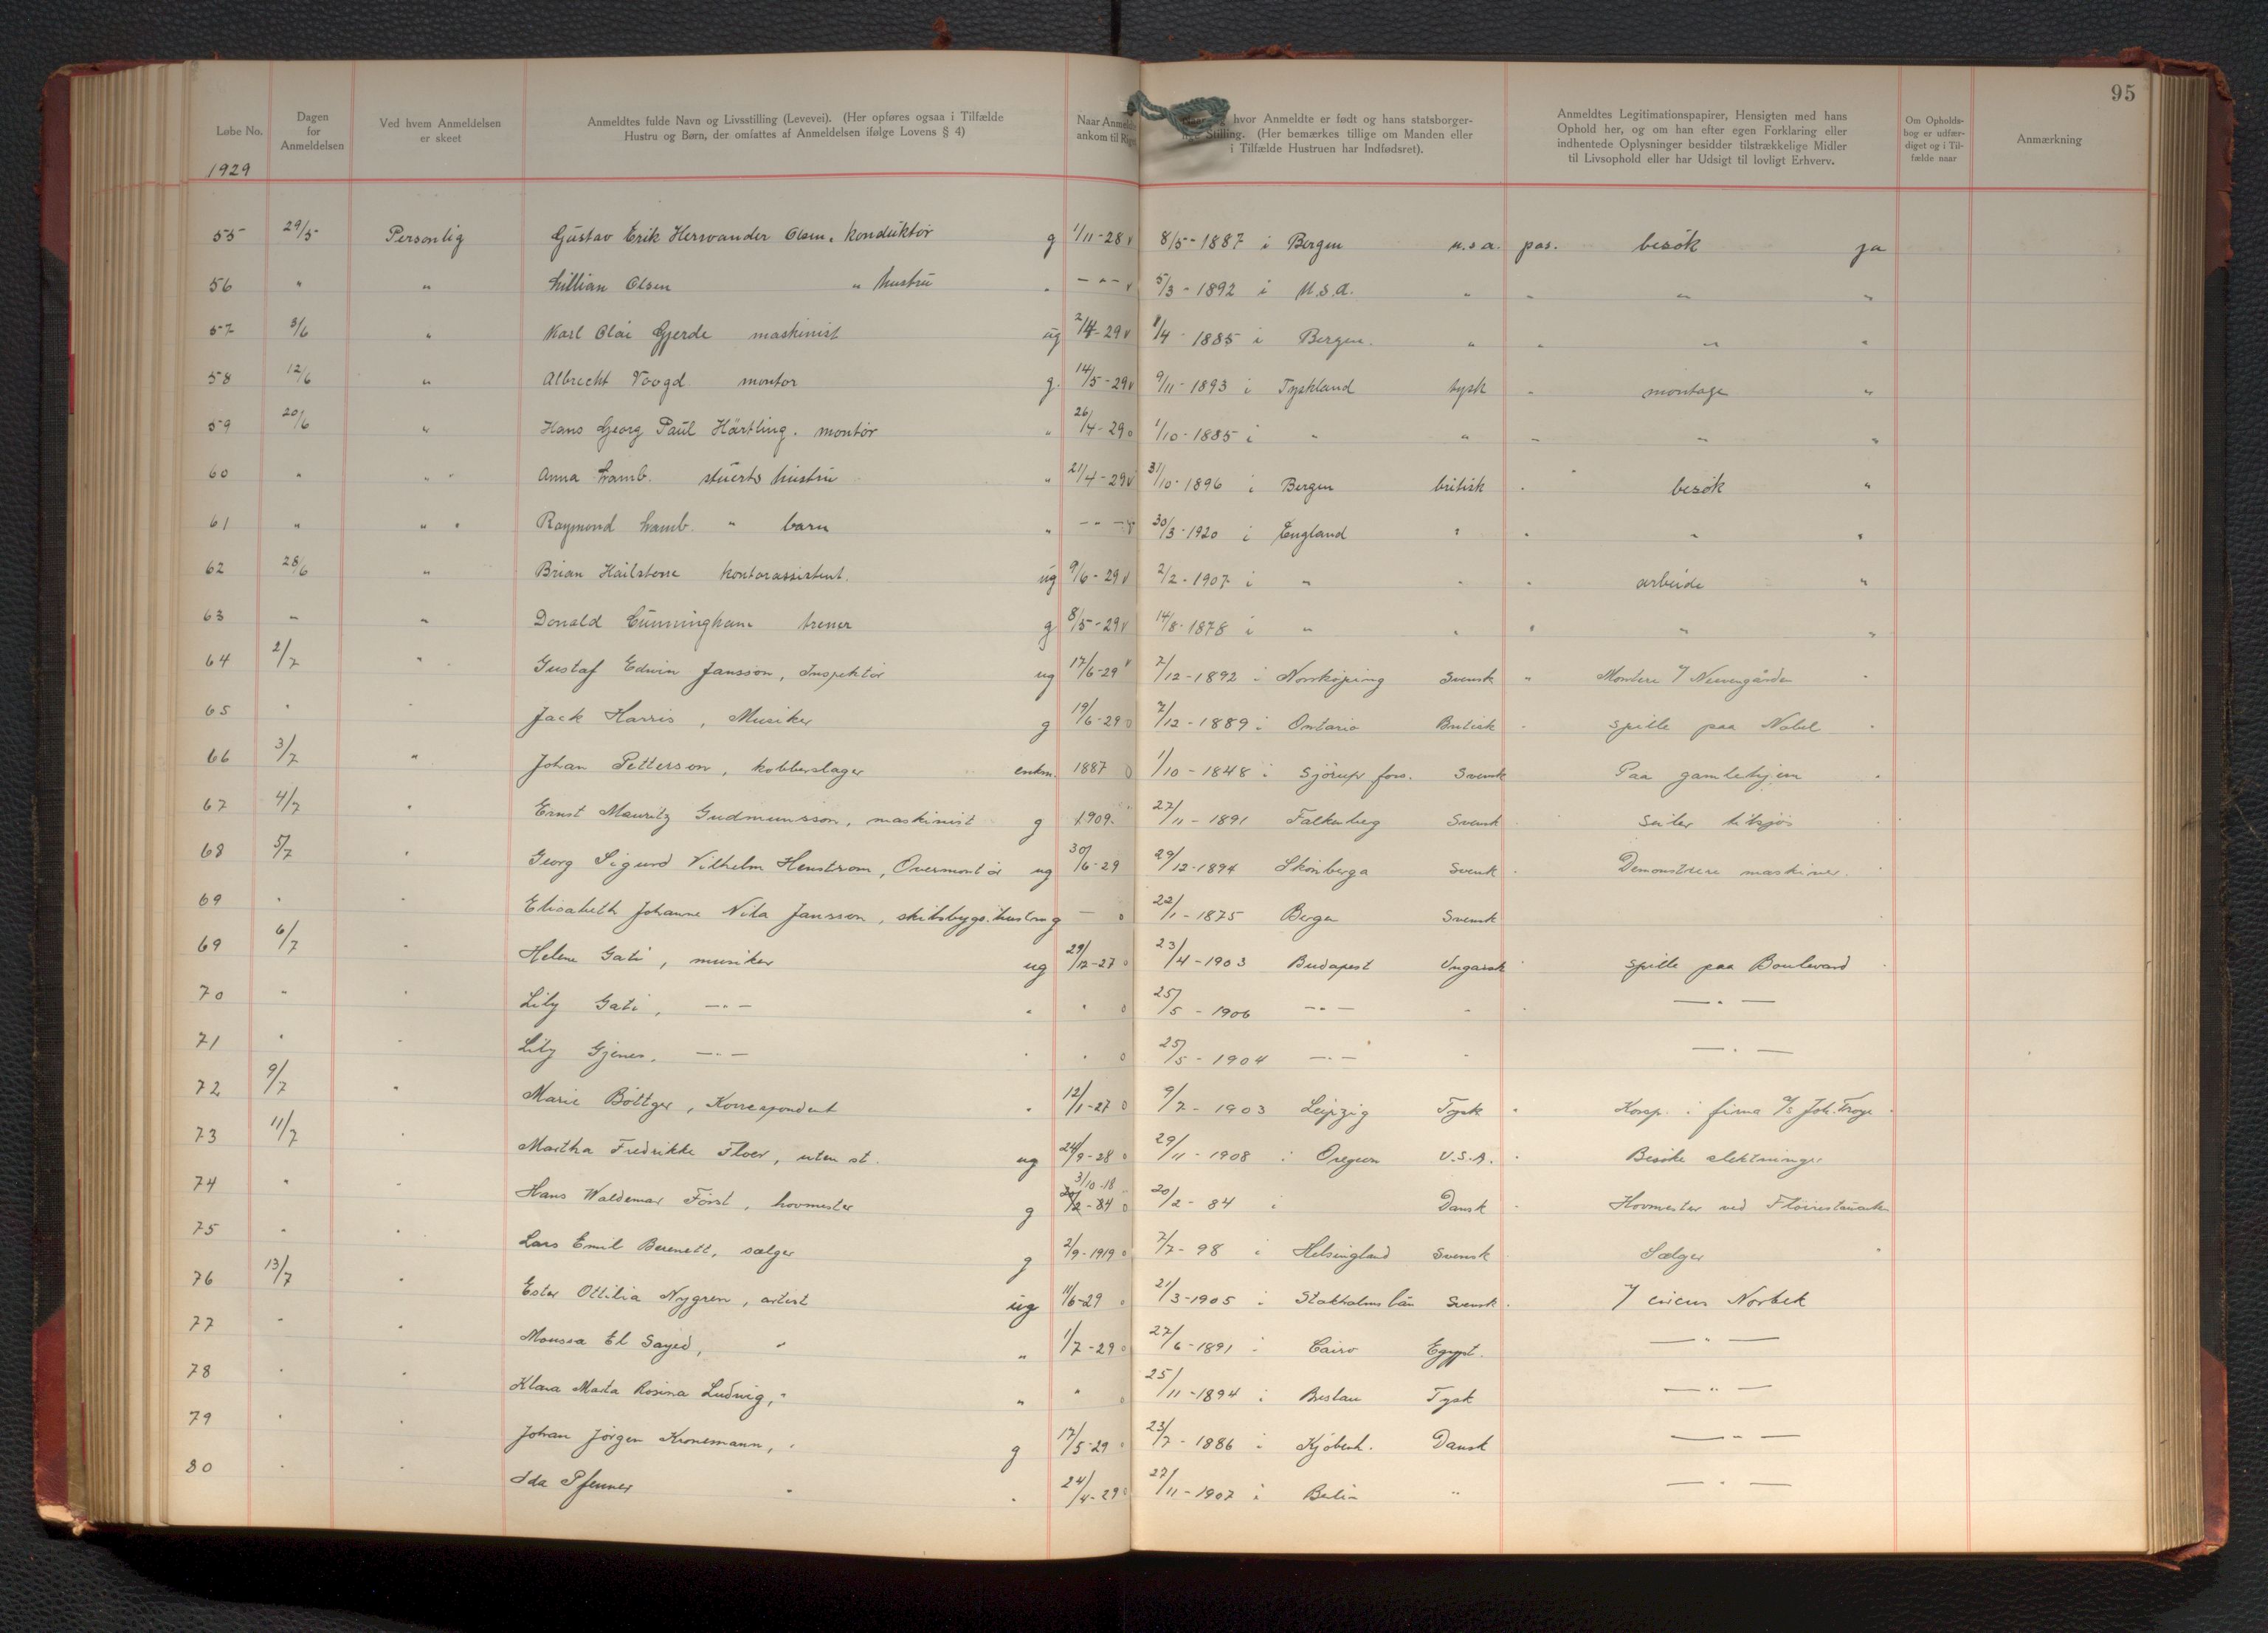 95
Løbe No.
Dagen for Anmeldelsen
Ved hvem Anmeldelsen er skeet
Anmeldtes fulde Navn og Livsstilling (Levevei). (Her opføres ogsaa i Tilfælde Hustru og Børn, der omfattes af Anmeldelsen ifølge Lovens § 4)
Naar Anmeldte ankom til Riget
hvor Anmeldte er født og hans statsborger- Stilling. (Her bemærkes tillige om Manden eller i Tilfælde Hustruen har Indfødsret).
Anmeldtes Legitimationspapirer, Hensigten med hans Ophold her, og om han efter egen Forklaring eller indhentede Oplysninger besidder tilstrækkelige Midler til Livsophold eller har Udsigt til lovligt Erhverv.
Om Opholds- bog er udfær- diget og i Til- fælde naar
Anmærkning
1929
55 29/5 Personlig Gustav Erik Olsen, konduktør g 1/11-28 v 8/5-1887 i Bergen u.s.a. pas. besök ja
56 " " Lillian Olsen " hustru " - " - v 5/3-1892 i U.S.A. " " " "
57 3/6 " Karl Olai Gjerde maskinist ug 2/4-29 v 1/4 1885 i Bergen. " " " "
58 12/6 " Albrecht Voogd montør g. 14/5-29 v 9/11-1893 i Tyskland tysk " montage "
59 20/6 " Hans Georg Paul Härtling. montør " 26/4-29 o 1/10-1885 i " " " " "
60 " " Anna Lamb. stuerts hustru " 21/4-29 v 31/10-1896 i Bergen britisk " besök "
61 " " Raymond Lamb. " barn " - " - v 30/3-1920 i England " " " "
62 28/6 " Brian Hailstone kontorassistent. ug 9/6-29 v 2/2-1907 i " " " arbeide "
63 " " Donald Cunningham trener g 8/5-29 v 14/8-1878 i " " " " "
64 2/7 " Gustaf Edwin Jansson, Inspektör ug 17/6-29 v 7/12-1892 i Norrköping Svensk "
65 " " Jack Harris, Musiker g 19/6-29 o 7/12-1889 i Ontario Britisk " spille paa Nobel "
66 3/7 " Johan Petterson, kobberslager enkm. 1887 o 1/10-1848 i Svensk Paa gamlehjem "
67 4/7 " Ernst Mauritz Gudmunsson, maskinist g 1909. 27/11-1891 Falkenberg Svensk Seiler tilsjøs
68 5/7 " Georg Sigurd Vilhelm Henstrom, Overmontør ug 30/6-29 29/12-1894 Skönberga Svensk " Demonstrere maskiner.
69 " " Elisabeth Johanne Jansson, skibsbygs. hustru g - o 22/1-1875 Bergen Svensk
69 6/7 " Helene Gati, musiker ug 29/12-27 o 23/4-1903 Budapest Ungarsk " Spille paa Boulevard
70 " " Lily Gati, -"- " " o 25/5-1906 -"- " -"-
71 " " Lily Gjenes, -"- " " o 25/5-1904 -"- " -"-
72 9/7 " Marie Böttger, Korrespondent " 12/1-27 o 9/7-1903 Leipzig Tysk " i firma A/S Joh. Troye
73 11/7 " Martha Fredrikke Floer, uten st. ug 24/9-28 o 29/11-1908 i Oregon U.S.A. " Besöke slektninger
74 " " Hans Waldemar Först, hovmester g 3/10-18 20/2-84 o 20/2-84 i Dansk " Hovmester ved Fløirestauranten
75 " " Lars Emil Berenett, sælger g 2/9-1919 o 7/7-98 i Helsingland Svensk Sælger "
76 13/7 " Ester Ottilia Nygren, artist ug 11/6-29 o 21/3-1905 i Stokholms län Svensk " circus Norbek
77 " " Moussa El Sayed, " " 1/7-29 o 27/6-1891 " Cairo Egypt. -"-
78 " " Klara Marta Rosina Ludwig, " " " o 25/11-1894 i Breslau Tysk -"-
79 " " Johan Jørgen Kronemann, " g 17/5-29 o 23/7-1886 i Kjøbenh. Dansk -"-
80 " " Ida Pfenner " " 24/4-29 o 27/11-1907 i Berlin " -"-